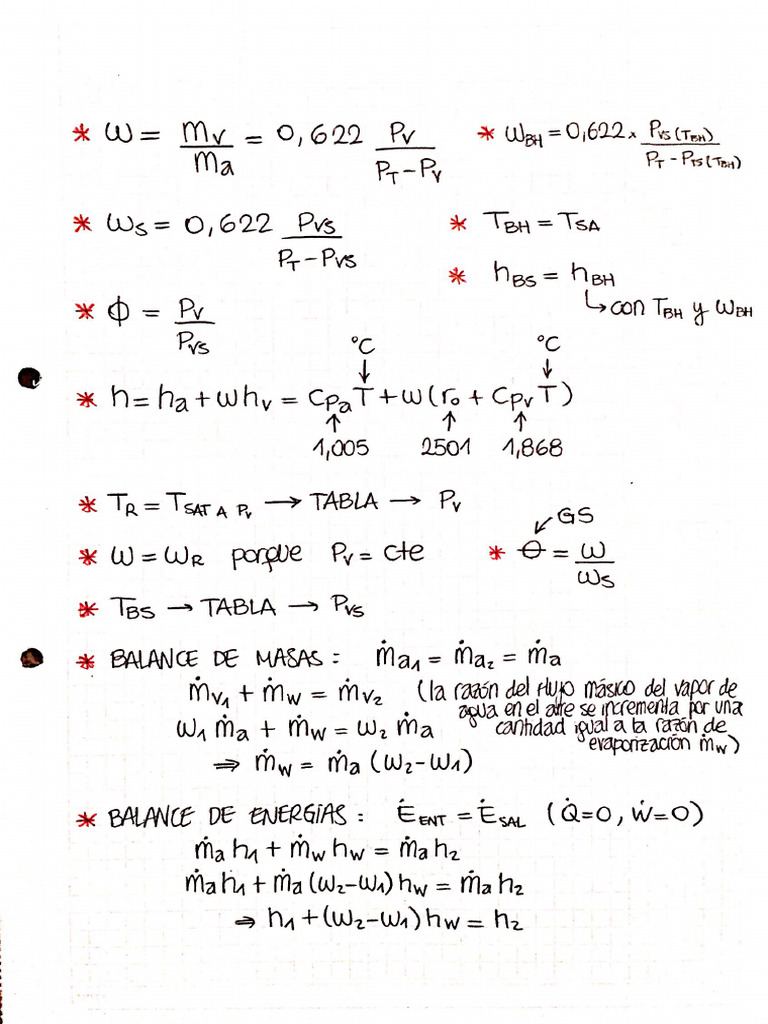 * ω = mv/ma = 0,622 Pv/(PT-Pv)   * ωBH = 0,622 x Pvs(TBH)/(PT - PTS(TBH))
* ωs = 0,622 Pvs/(PT-Pvs)   * TBH = TSA
* hBS = hBH
↳ con TBH y ωBH
* ϕ = Pv/Pvs
°C   °C
↓   ↓
* h = ha + ωhv = CpaT + ω(ro + CpvT)
↑   ↑   ↑
1,005   2501   1,868
* TR = TSAT A Pv → TABLA → Pv
↙ GS
* ω = ωR porque Pv = cte   * Θ = ω/ωs
* TBS → TABLA → Pvs
* BALANCE DE MASAS: ṁa1 = ṁa2 = ṁa
ṁv1 + ṁw = ṁv2 (la razón del flujo másico del vapor de
agua en el aire se incrementa por una
ω1 ṁa + ṁw = ω2 ṁa   cantidad igual a la razón de
evaporización ṁw)
⇒ ṁw = ṁa (ω2-ω1)
* BALANCE DE ENERGÍAS: ĖENT = ĖSAL (Q̇=0, Ẇ=0)
ṁa h1 + ṁw hw = ṁa h2
ṁa h1 + ṁa (ω2-ω1) hw = ṁa h2
⇒ h1 + (ω2-ω1) hw = h2